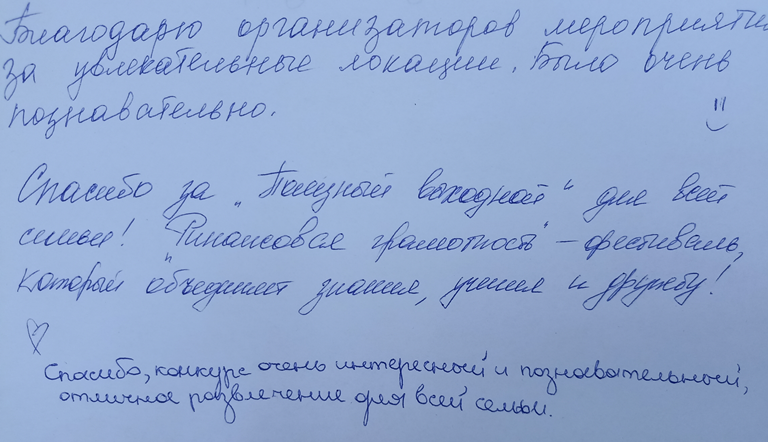 Благодарю организаторов мероприятия
за увлекательные локации. Было очень
познавательно.
Спасибо за „Полезный выходной“ для всей
семьи! „Финансовая грамотность“ – фестиваль,
который объединяет знания, умения и дружбу!
Спасибо, конкурс очень интересный и познавательный,
отличное развлечение для всей семьи.